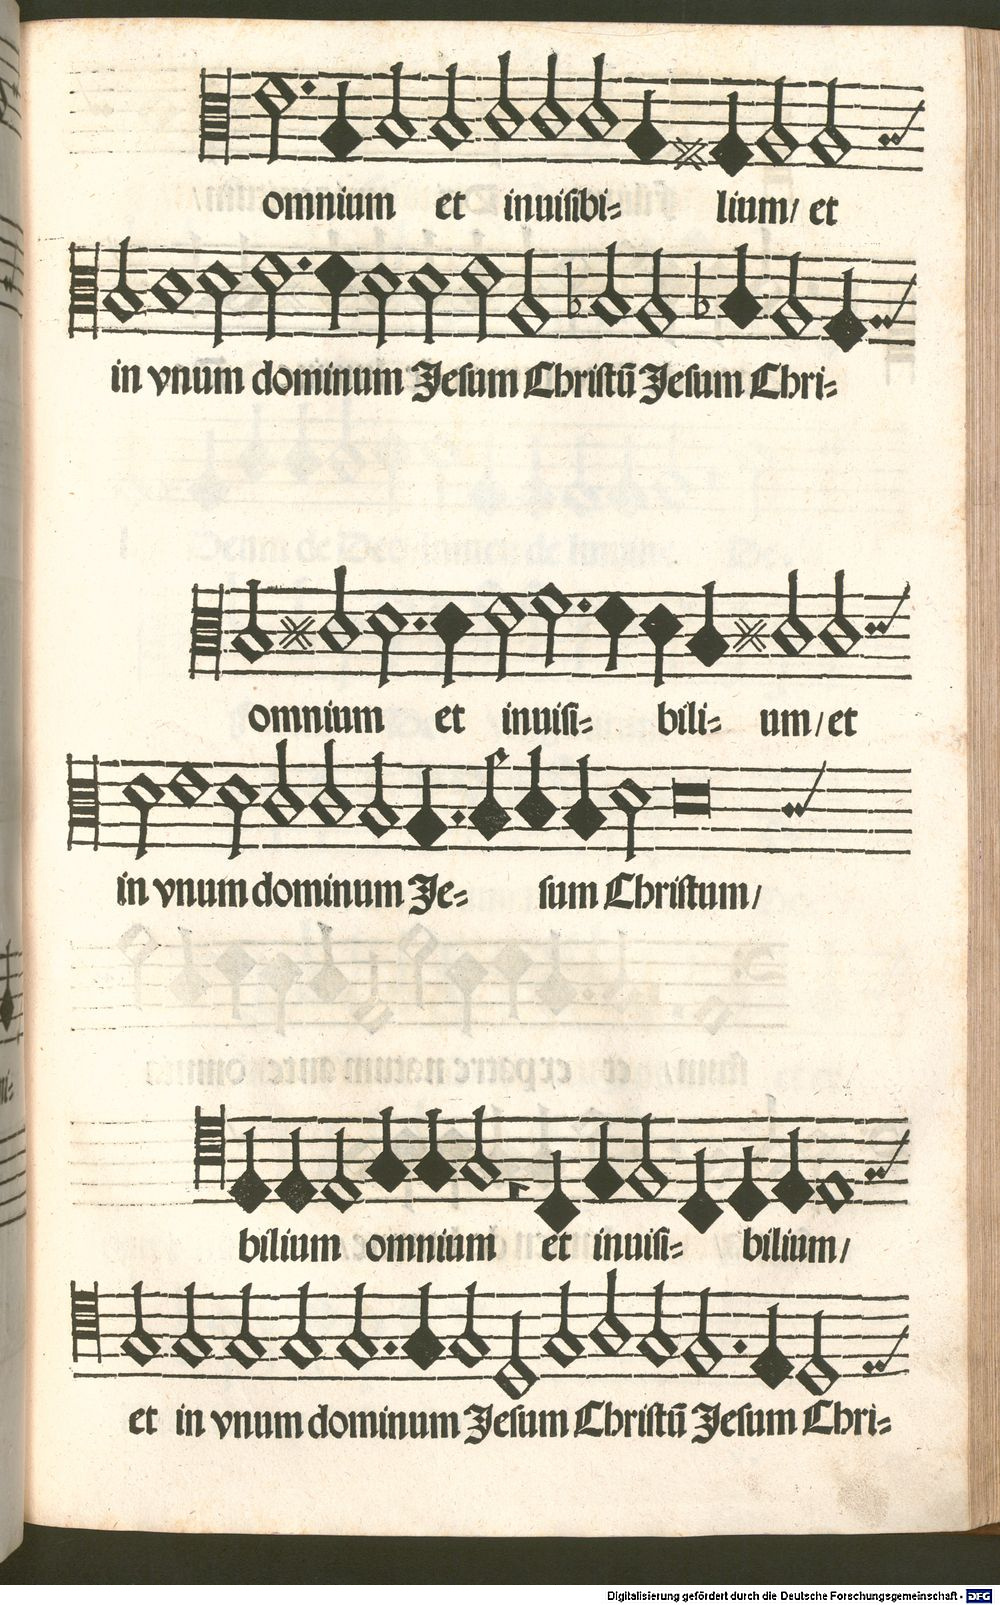 omnium et inuisibi= lium/ et
in vnum dominum Jesum Christū Jesum Chri=
omnium et inuisi= bili= um/et
in vnum dominum Je= sum Christum/
bilium omnium et inuisi= bilium/
et in vnum dominum Jesum Christū Jesum Chri=
Digitalisierung gefördert durch die Deutsche Forschungsgemeinschaft - DFG